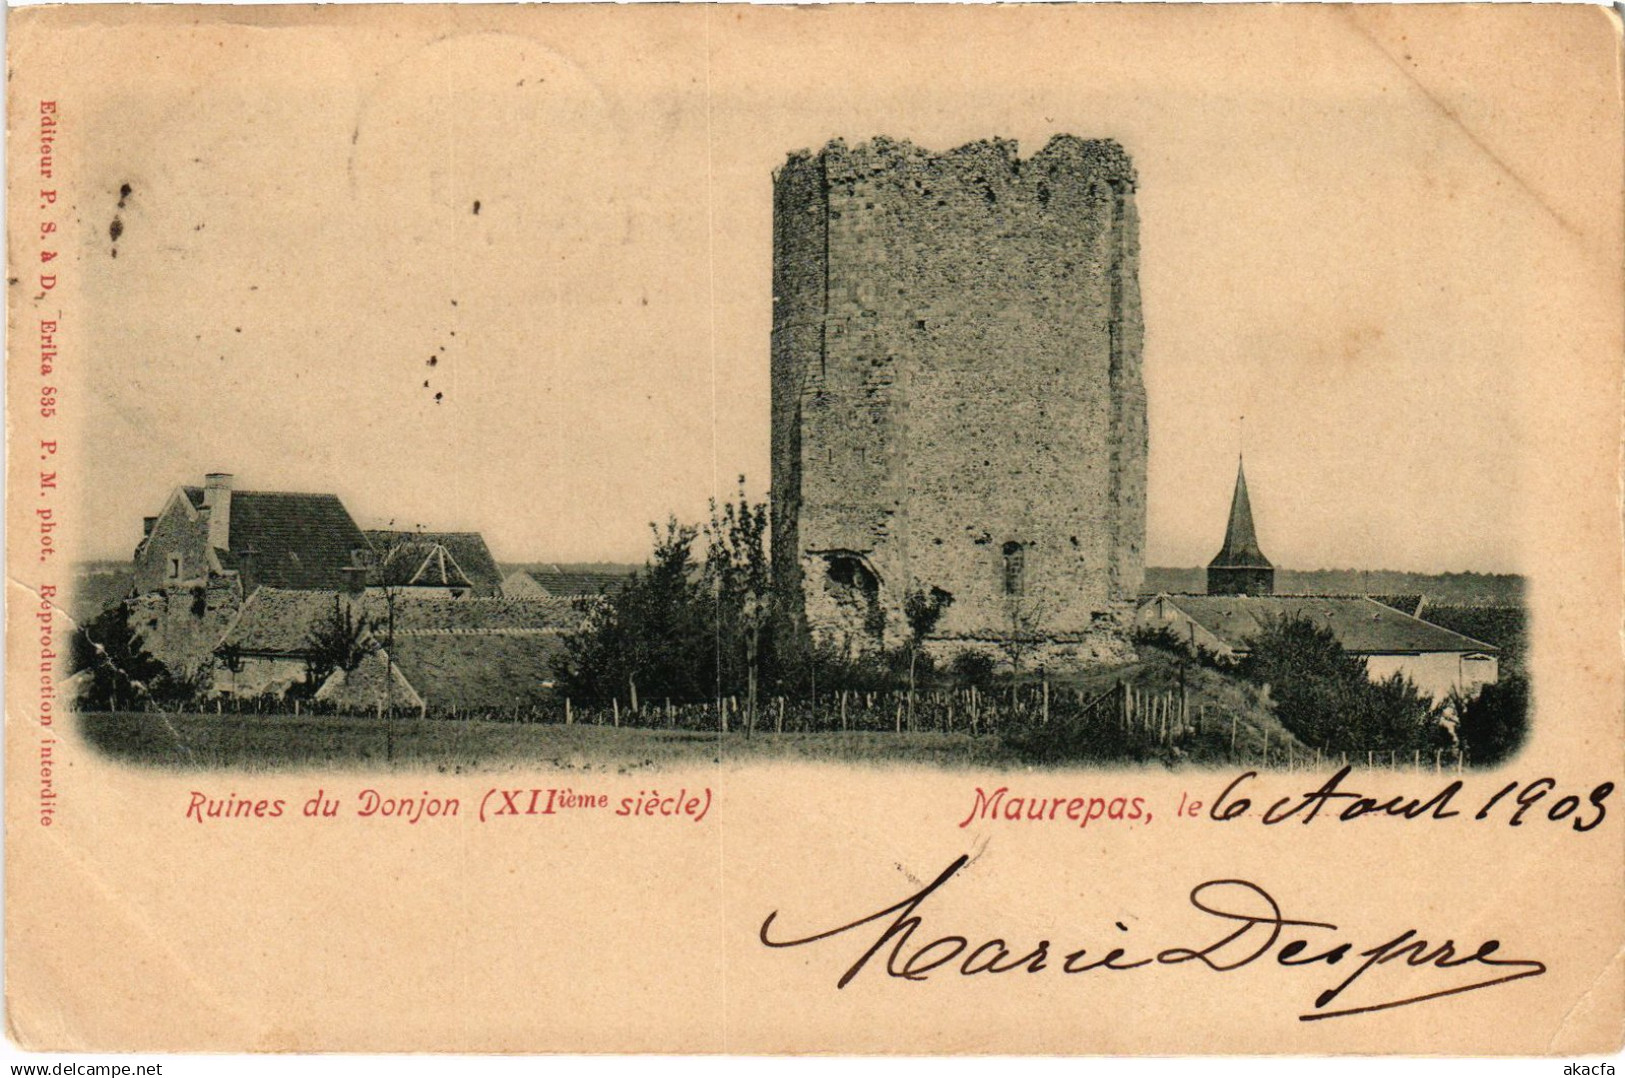 Editeur P. S. à D. Erika 835 P. M. phot. Reproduction interdite
Ruines du Donjon (XIIième siècle)
Maurepas, le 6 Aout 1903
Marie Despre
akacfa